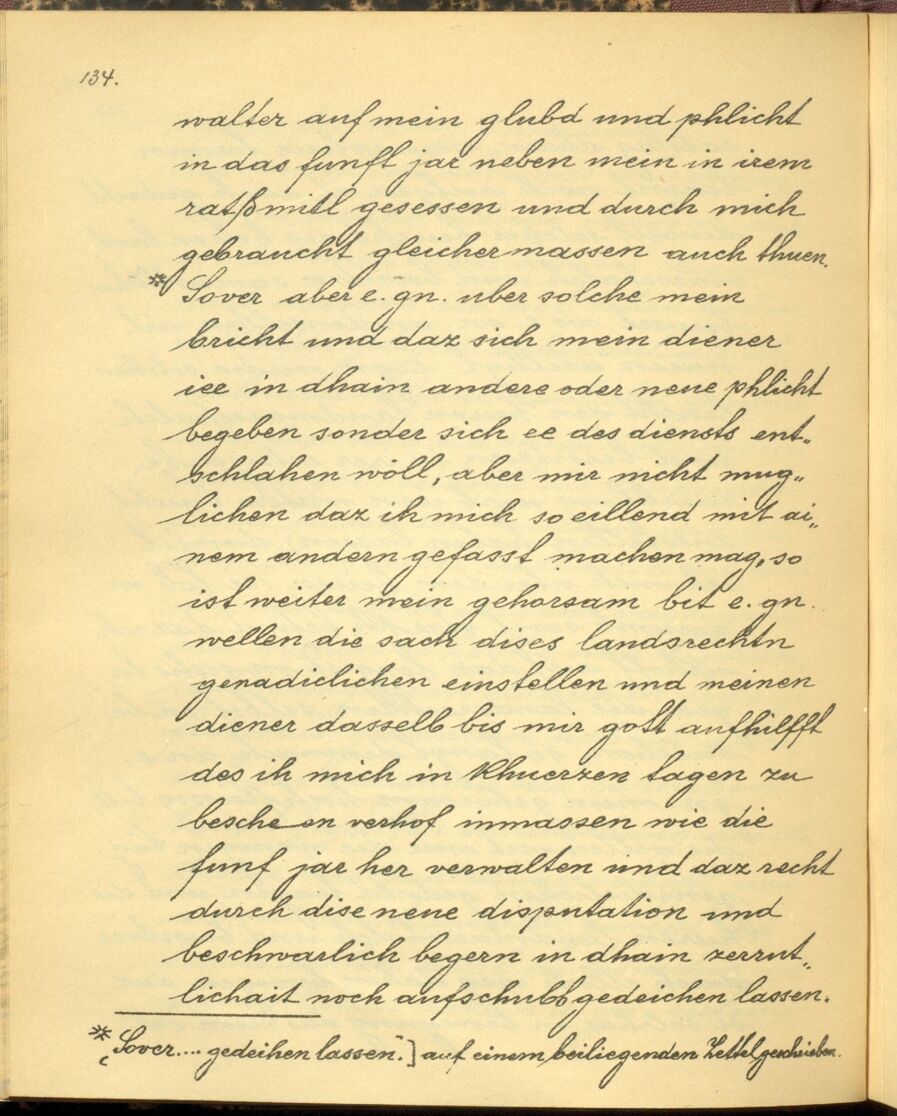 134.
walter auf mein glubd und phlicht
in das funft jar neben mein in irem
ratßmitl gesessen und durch mich
gebraucht gleichermassen auch thuen.
* Sover aber e. gn. uber solche mein
bricht und daz sich mein diener
iee in dhain andere oder neue phlicht
begeben sonder sich ee des diensts ent„
schlahen wöll, aber mir nicht mug„
lichen daz ih mich so eillend mit ai„
nem andern gefasst machen mag, so
ist weiter mein gehorsam bit e. gn.
wellen die sach dises landsrechtn
genadiclichen einstellen und meinen
diener dasselb bis mir gott aufhilfft
des ih mich in khuerzen tagen zu
beschehen verhof inmassen wie die
funf jar her verwalten und daz recht
durch dise neue disputation und
beschwarlich begern in dhain zerrut„
lichait noch aufschubb gedeichen lassen.
* (Sover.... gedeihen lassen.] auf einem beiliegenden Zettel geschrieben.